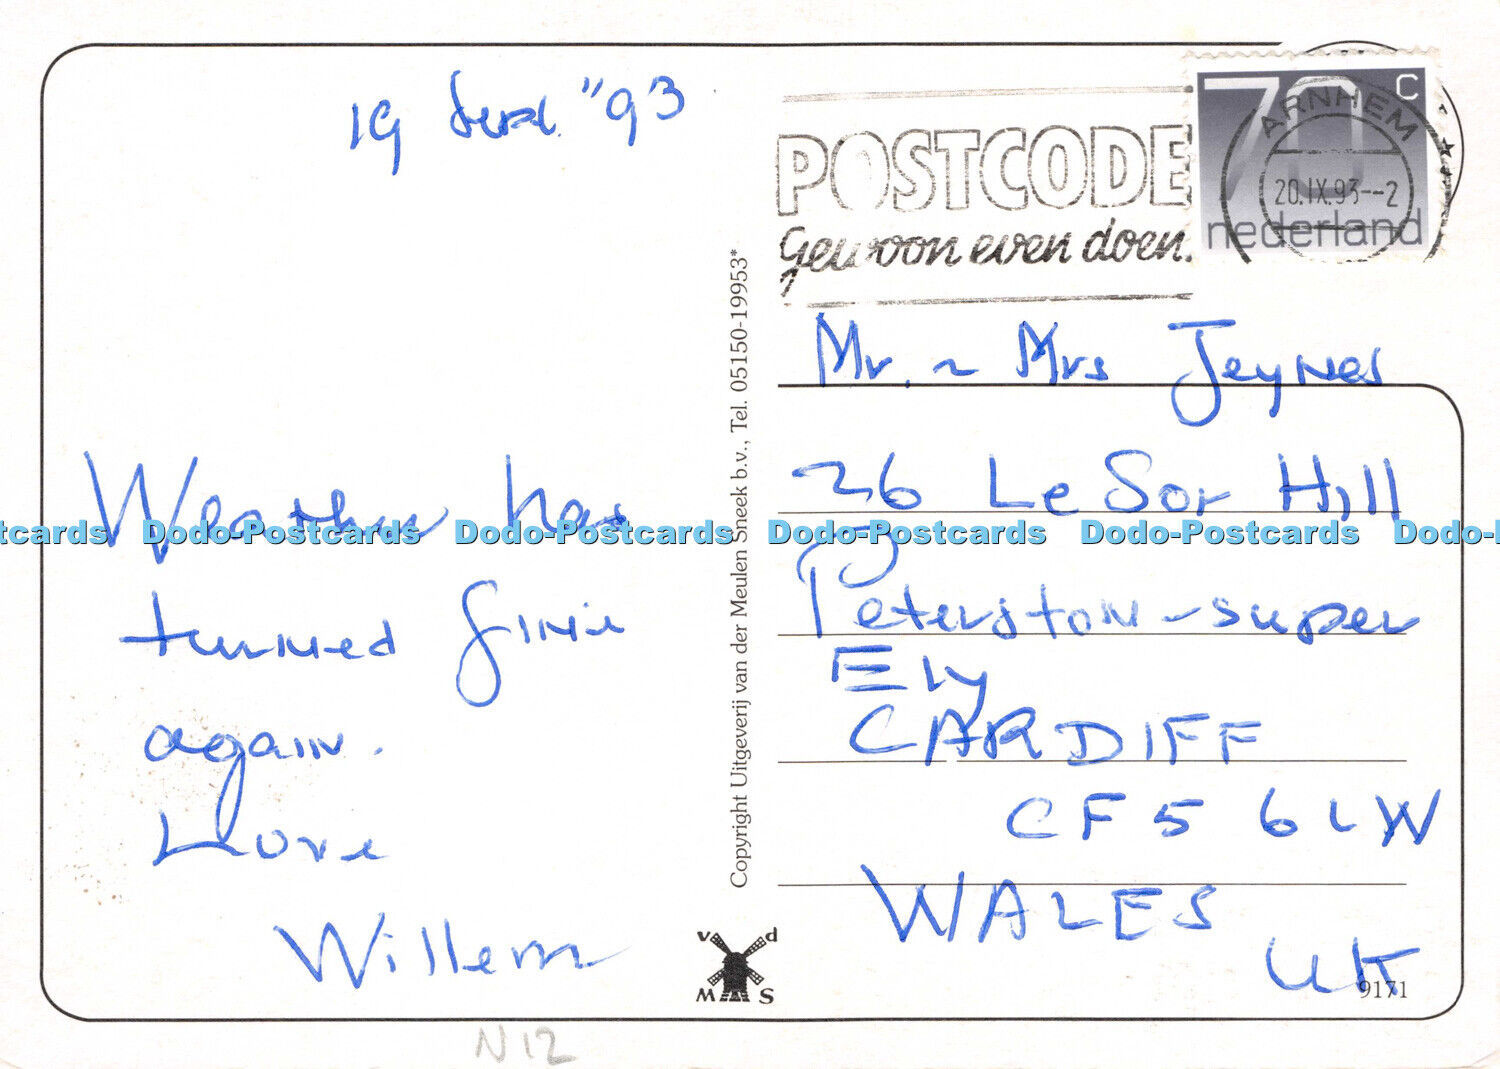 19 Sept. "93
Weather has
turned fine
again.
Love
Willem
POSTCODE
Gewoon even doen.
70 C
nederland
ARNHEM
20.IX.93--2
Mr. ~ Mrs Jeynes
26 Le Sor Hill
Peterston-super
Ely
CARDIFF
CF5 6LW
WALES
UK
9171
Copyright Uitgeverij van der Meulen Sneek b.v., Tel. 05150-19953*
v d
M S
N12
Dodo-Postcards Dodo-Postcards Dodo-Postcards Dodo-Postcards